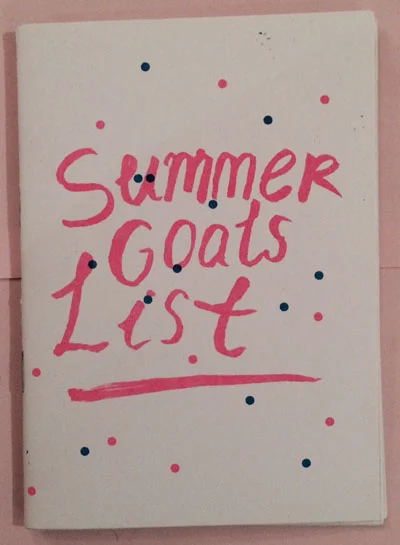 Summer
Goals
List